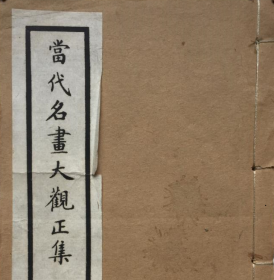 當代名畫大觀正集